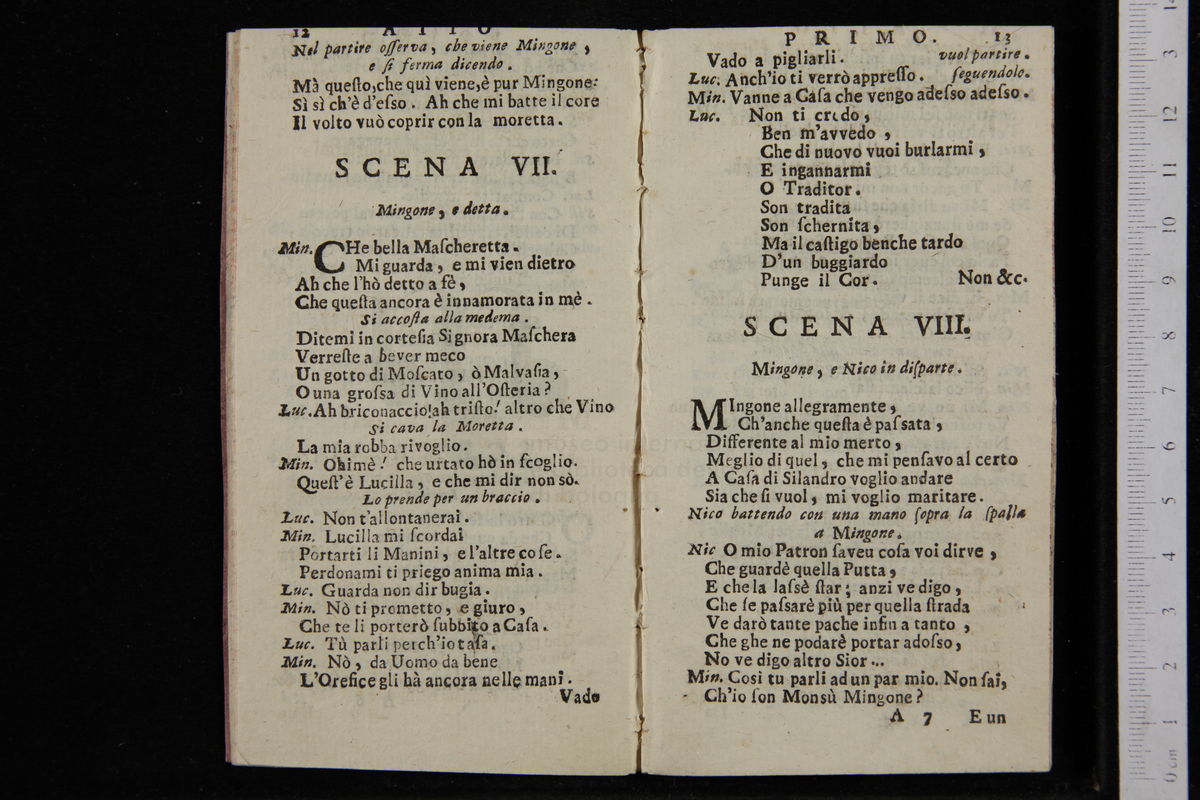 12 ATTO
Nel partire osserva, che viene Mingone,
e si ferma dicendo.
Mà questo, che quì viene, è pur Mingone:
Sì sì ch'è d'esso. Ah che mi batte il core
Il volto vuò coprir con la moretta.
SCENA VII.
Mingone, e detta.
Min. CHe bella Mascheretta.
Mi guarda, e mi vien dietro
Ah che l'hò detto a fè,
Che questa ancora è innamorata in mè.
Si accosta alla medema.
Ditemi in cortesia Signora Maschera
Verreste a bever meco
Un gotto di Moscato, ò Malvasia,
O una grossa di Vino all'Osteria?
Luc. Ah briconaccio! ah tristo! altro che Vino
Si cava la Moretta.
La mia robba rivoglio.
Min. Ohimè! che urtato hò in scoglio.
Quest'è Lucilla, e che mi dir non sò.
Lo prende per un braccio.
Luc. Non t'allontanerai.
Min. Lucilla mi scordai
Portarti li Manini, e l'altre cose.
Perdonami ti priego anima mia.
Luc. Guarda non dir bugia.
Min. Nò ti prometto, e giuro,
Che te li porterò subbito a Casa.
Luc. Tù parli perch'io tasa.
Min. Nò, da Uomo da bene
L'Orefice gli hà ancora nelle mani.
Vado
PRIMO. 13
Vado a pigliarli. vuol partire.
Luc. Anch'io ti verrò appresso. seguendolo.
Min. Vanne a Casa che vengo adesso adesso.
Luc. Non ti credo,
Ben m'avvedo,
Che di nuovo vuoi burlarmi,
E ingannarmi
O Traditor.
Son tradita
Son schernita,
Ma il castigo benche tardo
D'un buggiardo
Punge il Cor. Non &c.
SCENA VIII.
Mingone, e Nico in disparte.
MIngone allegramente,
Ch'anche questa è passata,
Differente al mio merto,
Meglio di quel, che mi pensavo al certo
A Casa di Silandro voglio andare
Sia che si vuol, mi voglio maritare.
Nico battendo con una mano sopra la spalla
a Mingone.
Nic O mio Patron saveu cosa voi dirve,
Che guardè quella Putta,
E che la lassè star; anzi ve digo,
Che se passarè più per quella strada
Ve darò tante pache infin a tanto,
Che ghe ne podarè portar adosso,
No ve digo altro Sior...
Min. Così tu parli ad un par mio. Non sai,
Ch'io son Monsù Mingone?
A 7 E un